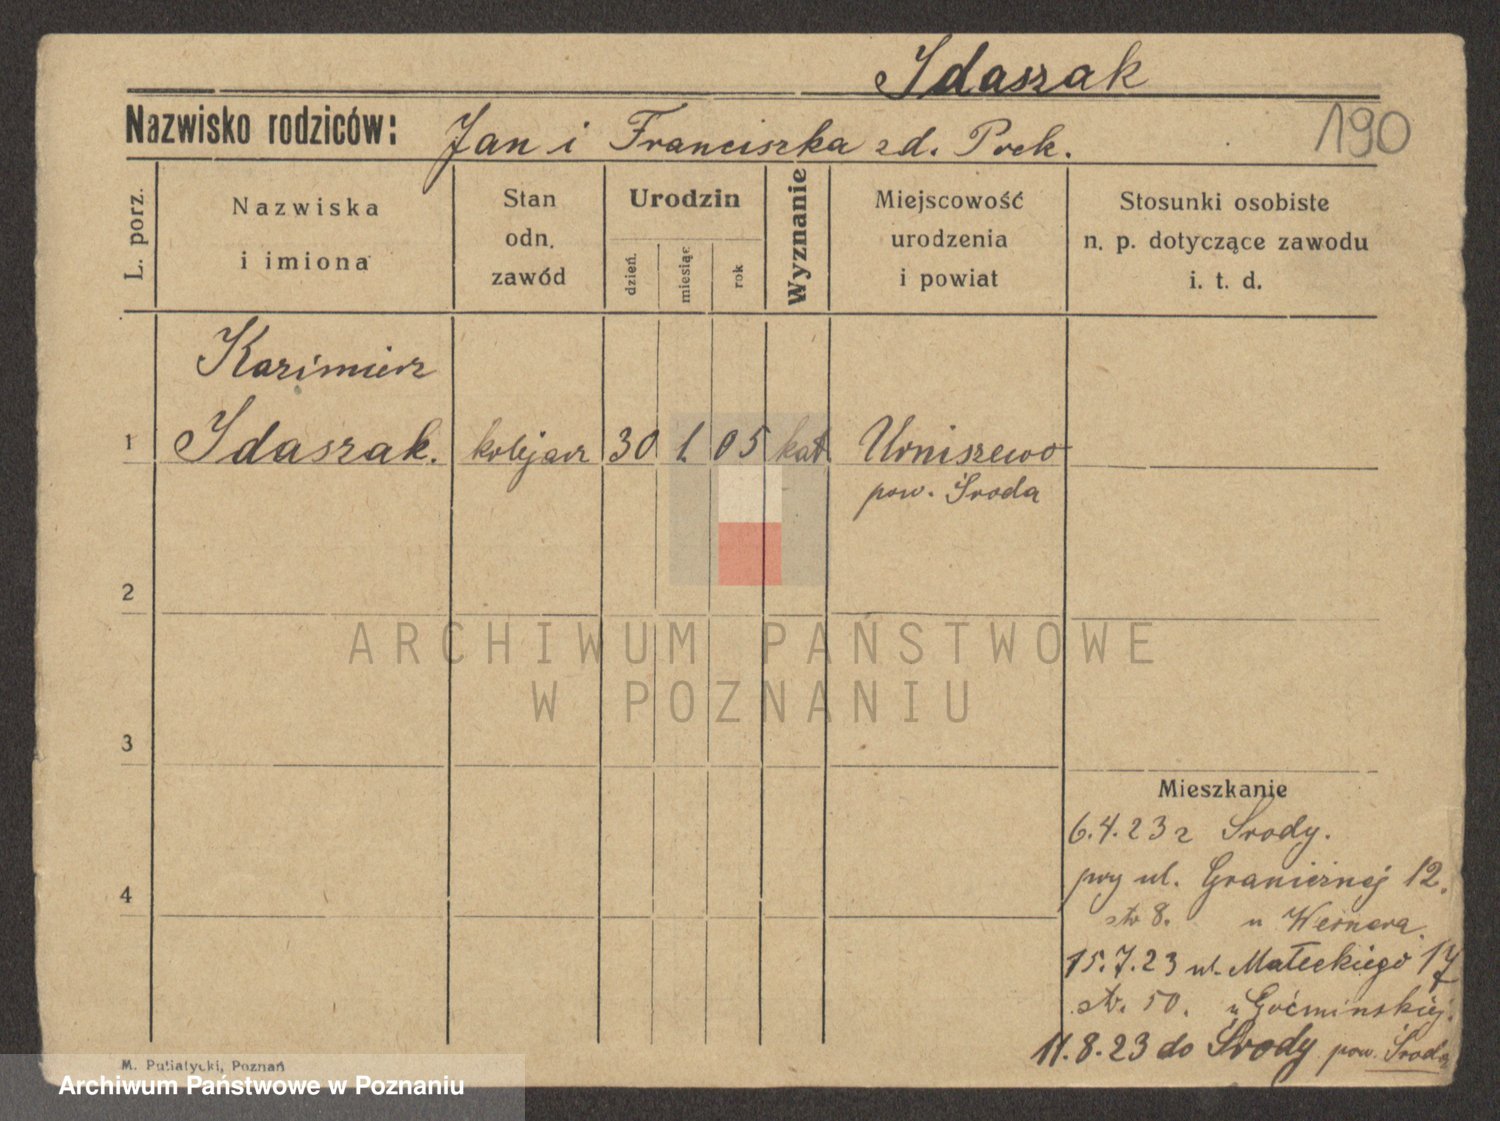 Idaszak
190
Nazwisko rodziców: Jan i Franciszka zd.
L. porz.
Nazwiska
i imiona
Stan
odn.
zawód
Urodzin
dzień.
miesiąc
rok
Wyznanie
Miejscowość
urodzenia
i powiat
Stosunki osobiste
n. p. dotyczące zawodu
i. t. d.
Kazimierz
1 Idaszak. kolejarz 30 1. 05 kat. Urniszewo
pow. Środa
2
3
4
ARCHIWUM PAŃSTWOWE
W POZNANIU
Mieszkanie
6.4.23 z Środy.
przy ul. Granicznej 12.
str 8. u Wernera.
15.7.23 ul. Małeckiego 17
str. 50. u Goćmińskiej.
11.8.23 do Środy pow. Środa
M. Putiatycki, Poznań
Archiwum Państwowe w Poznaniu